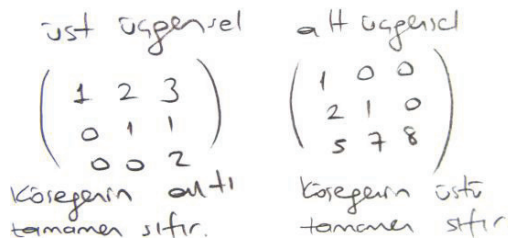 üst üçgensel
1 2 3
0 1 1
0 0 2
Köşegenin altı
tamamen sıfır.
alt üçgensel
1 0 0
2 1 0
5 7 8
Köşegenin üstü
tamamen sıfır